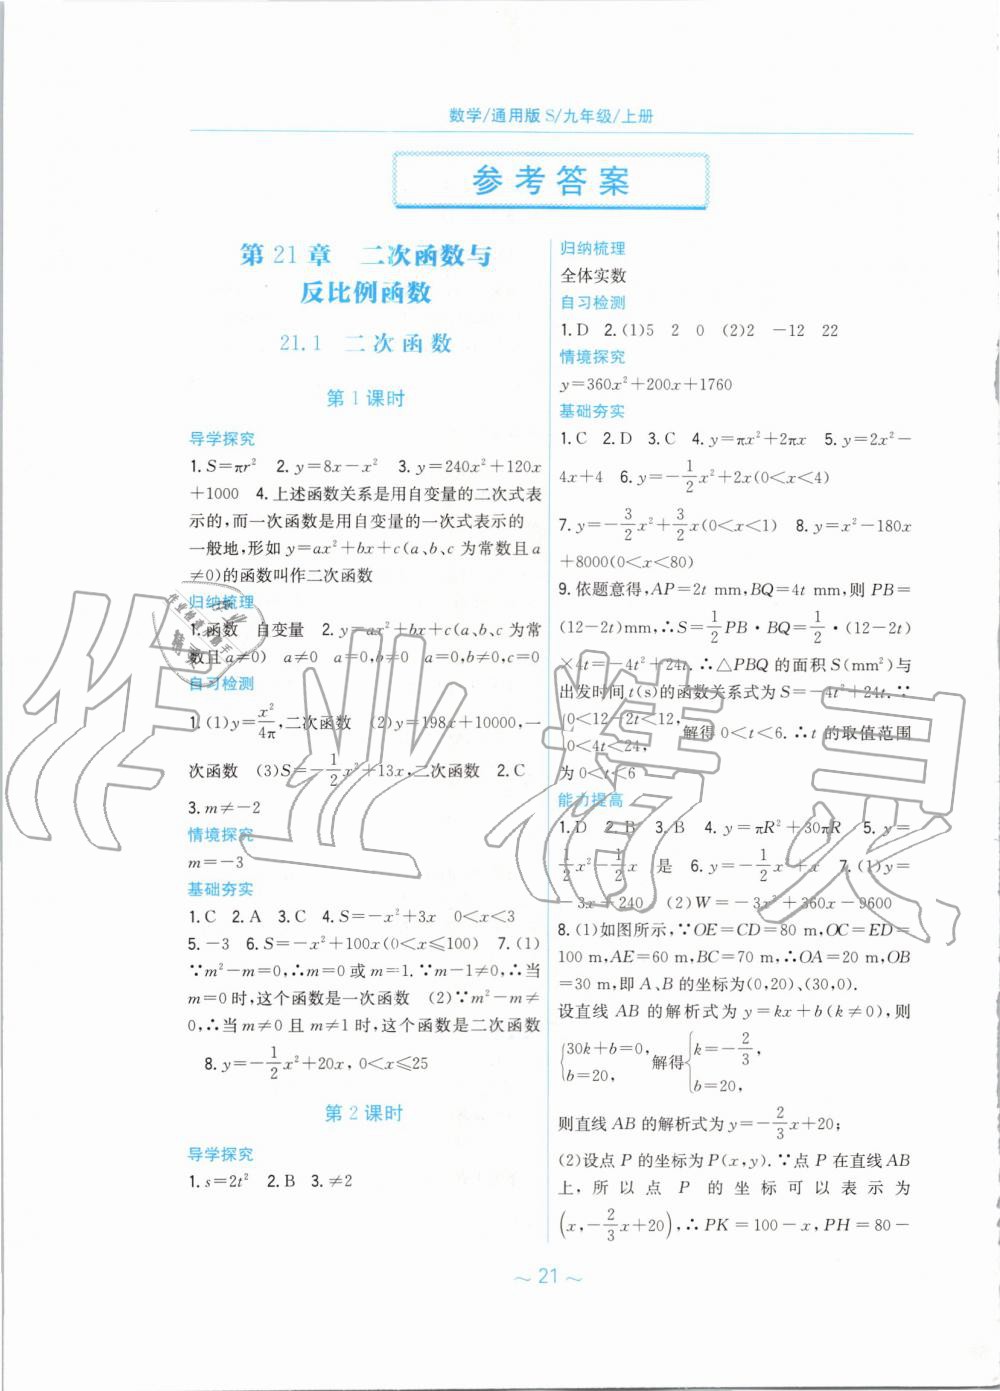 数学/通用版 S/九年级/上册
参考答案
第 21 章 二次函数与
反比例函数
21.1 二次函数
第 1 课时
导学探究
1. S=πr² 2. y=8x-x² 3. y=240x²+120x
+1000 4. 上述函数关系是用自变量的二次式表
示的,而一次函数是用自变量的一次式表示的
一般地,形如 y=ax²+bx+c(a、b、c 为常数且 a
≠0)的函数叫作二次函数
归纳梳理
1. 函数 自变量 2. y=ax²+bx+c(a、b、c 为常
数且 a≠0) a≠0 a=0,b≠0 a=0,b≠0,c=0
自习检测
1. (1)y=x²/4π,二次函数 (2)y=198x+10000,一
次函数 (3)S=-1/2x²+13x,二次函数 2. C
3. m≠-2
情境探究
m=-3
基础夯实
1. C 2. A 3. C 4. S=-x²+3x 0<x<3
5. -3 6. S=-x²+100x(0<x≤100) 7. (1)
∵m²-m=0,∴m=0 或 m=1. ∵m-1≠0,∴当
m=0 时,这个函数是一次函数 (2)∵m²-m≠
0,∴当 m≠0 且 m≠1 时,这个函数是二次函数
8. y=-1/2x²+20x, 0<x≤25
第 2 课时
导学探究
1. s=2t² 2. B 3. ≠2
归纳梳理
全体实数
自习检测
1. D 2. (1)5 2 0 (2)2 -12 22
情境探究
y=360x²+200x+1760
基础夯实
1. C 2. D 3. C 4. y=πx²+2πx 5. y=2x²-
4x+4 6. y=-1/2x²+2x(0<x<4)
7. y=-3/2x²+3/2x(0<x<1) 8. y=x²-180x
+8000(0<x<80)
9. 依题意得,AP=2t mm,BQ=4t mm,则 PB=
(12-2t)mm,∴S=1/2PB·BQ=1/2·(12-2t)
×4t=-4t²+24t. ∴△PBQ 的面积 S(mm²)与
出发时间 t(s)的函数关系式为 S=-4t²+24t. ∵
{0<12-2t<12, 0<4t<24, 解得 0<t<6. ∴t 的取值范围
为 0<t<6
能力提高
1. D 2. B 3. B 4. y=πR²+30πR 5. y=
1/2x²-1/2x 是 6. y=-1/2x²+x 7. (1)y=
-3x+240 (2)W=-3x²+360x-9600
8. (1)如图所示,∵OE=CD=80 m,OC=ED=
100 m,AE=60 m,BC=70 m,∴OA=20 m,OB
=30 m,即 A、B 的坐标为(0,20)、(30,0).
设直线 AB 的解析式为 y=kx+b(k≠0),则
{30k+b=0, b=20, 解得{k=-2/3, b=20,
则直线 AB 的解析式为 y=-2/3x+20;
(2)设点 P 的坐标为 P(x,y). ∵点 P 在直线 AB
上,所以点 P 的坐标可以表示为
(x,-2/3x+20),∴PK=100-x,PH=80-
~ 21 ~
作业精灵